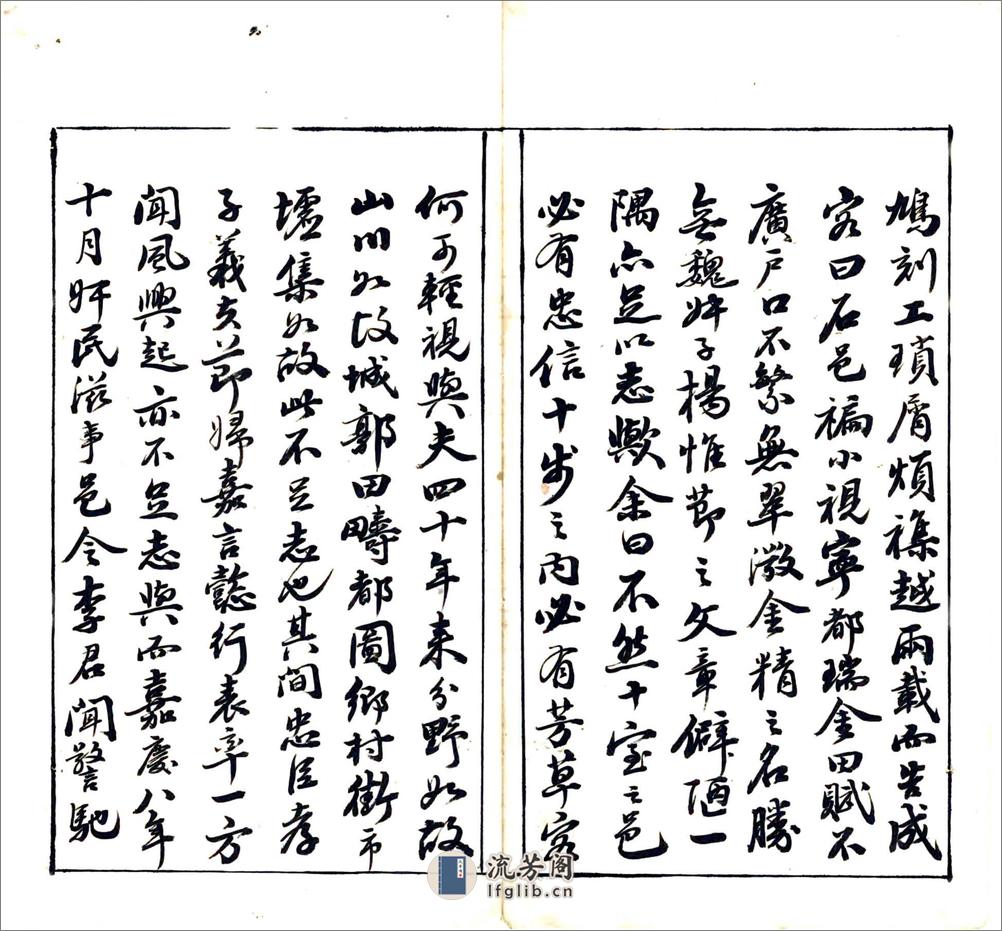 鳩刻工瑣屑煩襍越兩載而告成
客曰石邑褊小視寧都瑞金田賦不
廣戶口不繁無翠微金精之名勝
無魏姊子楊惟節之文章僻陋一
隅亦足以志歟余曰不然十室之邑
必有忠信十步之內必有芳草客
何可輕視與夫四十年来分野如故
山川如故城郭田疇都圖鄉村街市
墟集如故此不足志也其間忠臣孝
子義夫節婦嘉言懿行表率一方
聞風興起亦不足志與而嘉慶八年
十月奸民滋事邑令李君聞警馳
流芳阁
lfglib.cn